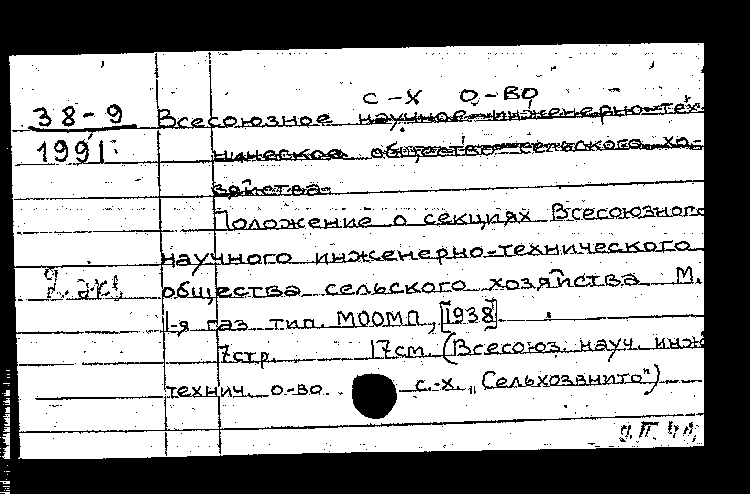 с-х о-во
38-9 Всесоюзное научное инженерно-тех-
1991 ническое общество сельского хо-
зяйства
Положение о секциях Всесоюзного
научного инженерно-технического
2 экз общества сельского хозяйства М.
1-я газ тип. МООМП, [1938].
7стр. 17см. (Всесоюз. науч. инж
технич. о-во с.-х. „Сельхозвнито")